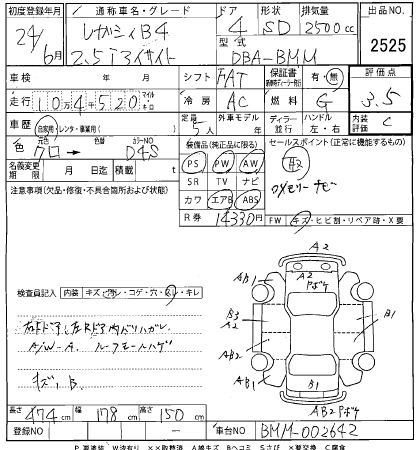 初度登録年月 通称車名・グレード ドア 形状 排気量 出品NO.
24年 6月 レガシィB4 4 SD 2500cc 2525
2.5iアイサイト 型式 DBA-BMM
車検 年 月 日 シフト FAT 保証書 有・無 評価点 3.5
走行 10万4千520 マイル キロ 冷房 AC 燃料 G
車歴 自家用・レンタ・事業用( ) 定員 5人 外車モデル 年 ディーラー 並行 ハンドル 左・右 内装評価 C
色 元色 クロ → 色替 カラーNO D4S 装備品(純正品に限る) セールスポイント(正常に機能するもの)
名義変更期限 月 日迄 積載 t PS PW AW 取
注意事項(欠品・修復・不具合箇所および状態) SR TV ナビ
カワ エアB ABS メモリーナビ
R券 14330円 FW キズ・ヒビ割・リペア跡・X要
A2
A2 Pボケ
AB1 A1
検査員記入 内装 キズ・汚レ・コゲ・穴・スレ・キレ
B3 A2 B1
右Fドア、左Rドア内バリハガレ
A/W-A. ルーフモールハゲ AB2
キズ、B. AB1 B1 A1
AB2 Pボケ
長さ 474cm 幅 178cm 高さ 150cm
登録NO 車台NO BMM-002642
P要塗装 W波有り ××取替済 A線キズ Bヘコミ Sさび ×要交換 C腐食